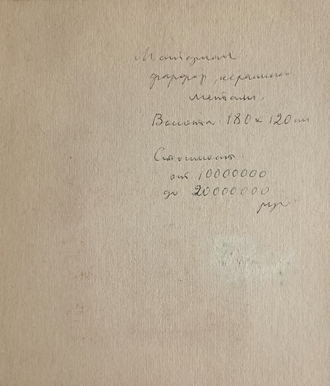 Материал
фарфор, керамика
металл.
Высота 180 х 120 см
Стоимость
от 10000000
до 20000000